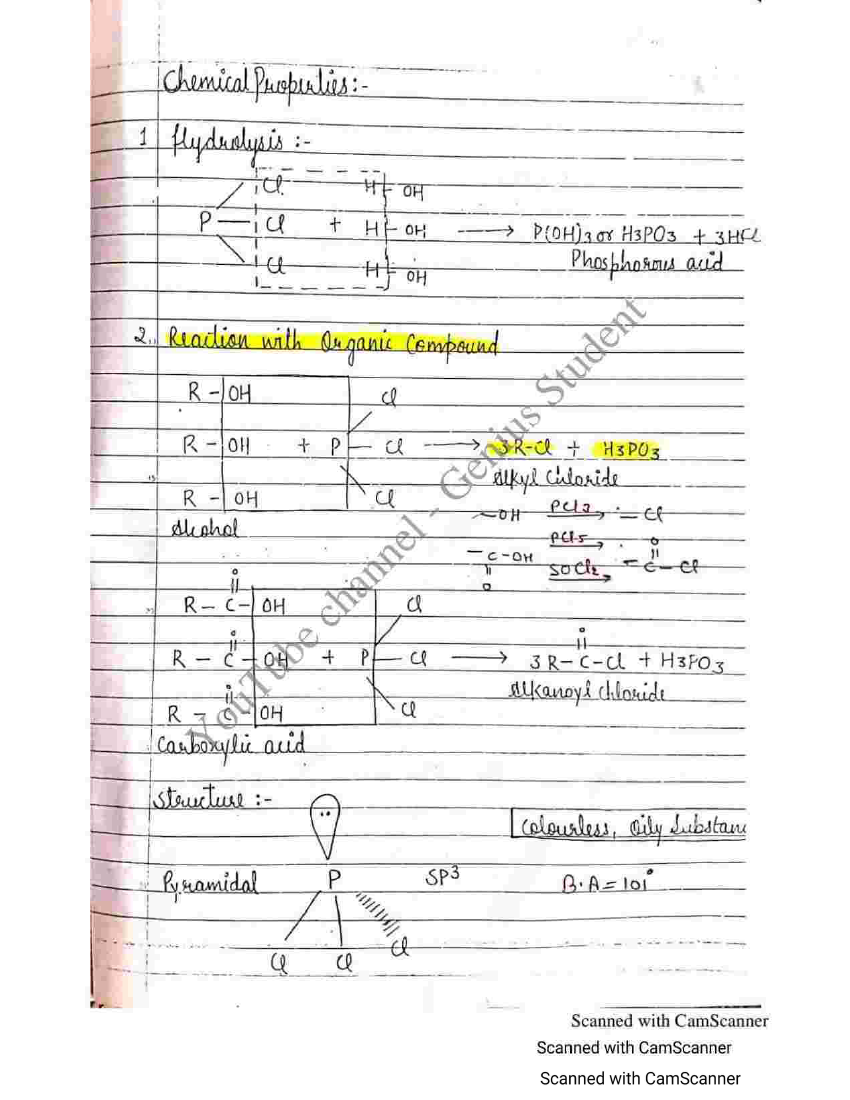 Chemical Properties:-
1 Hydrolysis :-
Cl H OH
P Cl + H OH → P(OH)3 or H3PO3 + 3HCl
Cl H OH
Phosphorous acid
2. Reaction with Organic Compound
R - OH Cl
R - OH + P - Cl → 3R-Cl + H3PO3
Alkyl Chloride
R - OH Cl
Alcohol
-OH PCl3 → -Cl
PCl5 → O
-C-OH SOCl2 → -C-Cl
O
O
R - C - OH Cl
O O
R - C - OH + P - Cl → 3R-C-Cl + H3PO3
Alkanoyl chloride
O
R - C - OH Cl
Carboxylic acid
Structure :-
Colourless, Oily Substan
Pyramidal P SP3 B.A = 101°
Cl Cl Cl
YouTube channel - Genius Student
Scanned with CamScanner
Scanned with CamScanner
Scanned with CamScanner